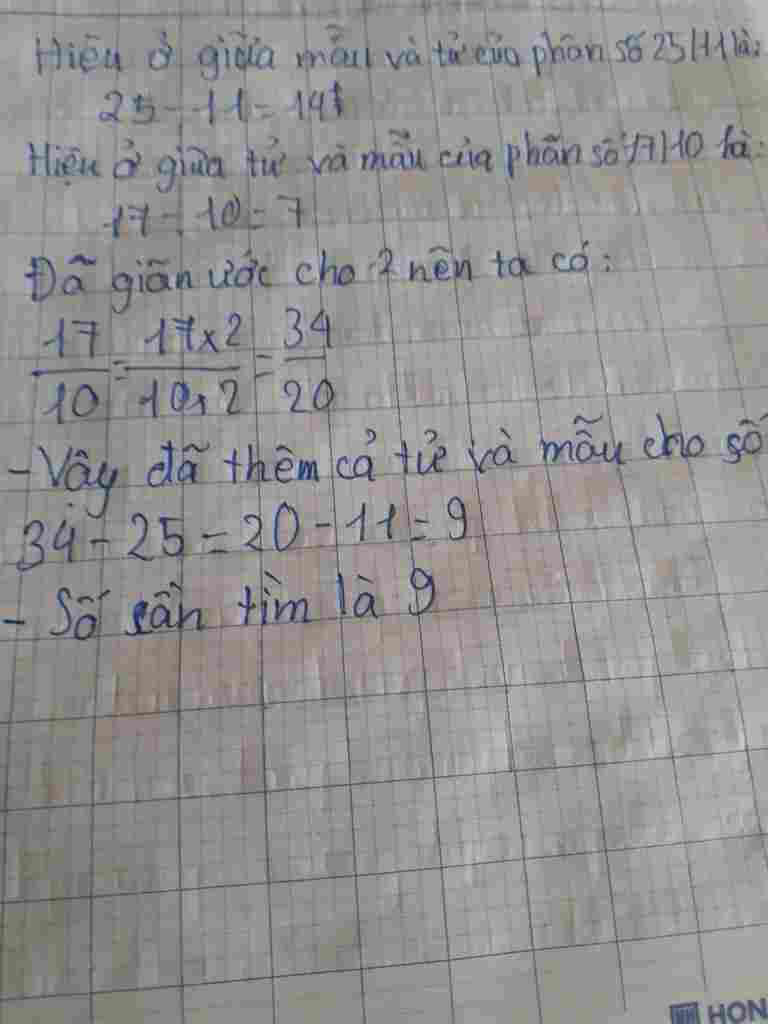 Hiệu ở giữa mẫu và tử của phân số 25/11 là:
25 - 11 = 14
Hiệu ở giữa tử và mẫu của phân số 17/10 là:
17 - 10 = 7
Đã giãn ước cho 2 nên ta có:
17/10 = 17x2/10x2 = 34/20
- Vậy đã thêm cả tử và mẫu cho số
34 - 25 = 20 - 11 = 9
- Số cần tìm là 9
HON